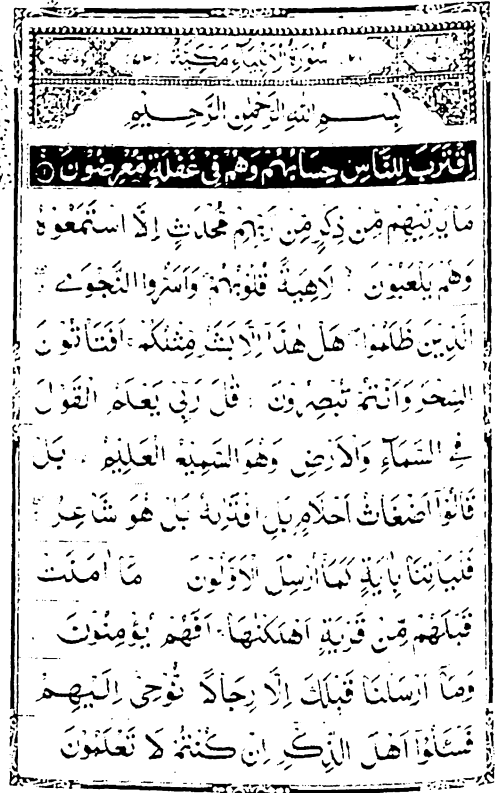 سُورَةُ الْاَنْبِيَاءِ مَكِّيَّةٌ
بِسْمِ اللّٰهِ الرَّحْمٰنِ الرَّحِيْمِ
اِقْتَرَبَ لِلنَّاسِ حِسَابُهُمْ وَهُمْ فِيْ غَفْلَةٍ مُّعْرِضُوْنَ ۝۱
مَا يَأْتِيْهِمْ مِّنْ ذِكْرٍ مِّنْ رَّبِّهِمْ مُّحْدَثٍ اِلَّا اسْتَمَعُوْهُ
وَهُمْ يَلْعَبُوْنَ لَاهِيَةً قُلُوْبُهُمْ وَاَسَرُّوا النَّجْوَى
الَّذِيْنَ ظَلَمُوْا هَلْ هٰذَا اِلَّا بَشَرٌ مِّثْلُكُمْ اَفَتَأْتُوْنَ
السِّحْرَ وَاَنْتُمْ تُبْصِرُوْنَ قٰلَ رَبِّيْ يَعْلَمُ الْقَوْلَ
فِي السَّمَآءِ وَالْاَرْضِ وَهُوَ السَّمِيْعُ الْعَلِيْمُ بَلْ
قَالُوْٓا اَضْغَاثُ اَحْلَامٍ بَلِ افْتَرٰىهُ بَلْ هُوَ شَاعِرٌ
فَلْيَأْتِنَا بِاٰيَةٍ كَمَآ اُرْسِلَ الْاَوَّلُوْنَ مَآ اٰمَنَتْ
قَبْلَهُمْ مِّنْ قَرْيَةٍ اَهْلَكْنٰهَا اَفَهُمْ يُؤْمِنُوْنَ
وَمَآ اَرْسَلْنَا قَبْلَكَ اِلَّا رِجَالًا نُّوْحِيْٓ اِلَيْهِمْ
فَسْـَٔلُوْٓا اَهْلَ الذِّكْرِ اِنْ كُنْتُمْ لَا تَعْلَمُوْنَ